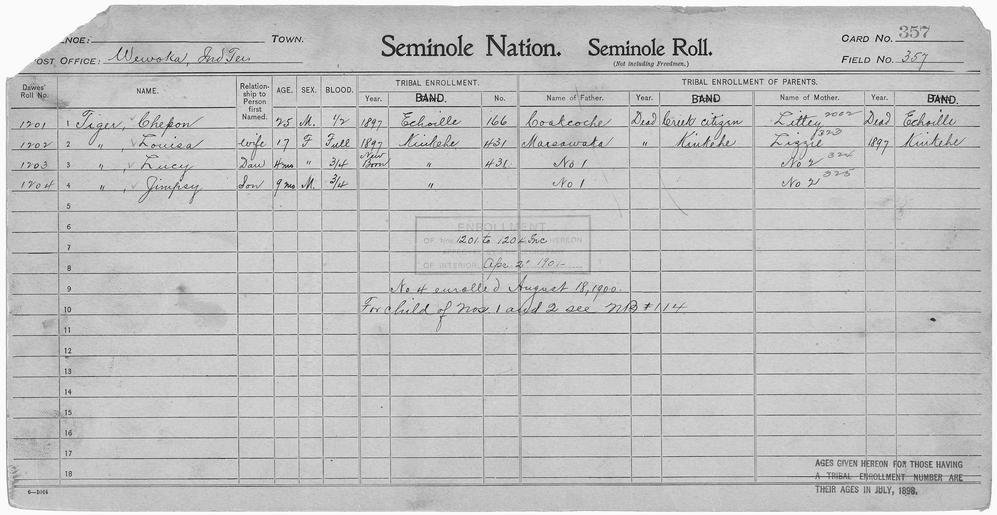 ENCE: TOWN.
POST OFFICE: Wewoka, Ind Ter
Seminole Nation. Seminole Roll.
(Not including Freedmen.)
CARD NO. 357
FIELD NO. 357
Dawes' Roll No. NAME. Relationship to Person first Named. AGE. SEX. BLOOD. TRIBAL ENROLLMENT. TRIBAL ENROLLMENT OF PARENTS.
Year. BAND. No. Name of Father. Year. BAND Name of Mother. Year. BAND.
1201 1 Tiger, Chepon 25 M. 1/2 1897 Echoille 166 Coakcoche Dead Creek citizen Littey 2002 Dead Echoille
1202 2 " , Louisa wife 17 F Full 1897 Kinkehe 431 Marsawake " Kinkehe Lizzie 323 1897 Kinkehe
1203 3 " , Lucy Dau 4ms " 3/4 New Born " 431. No 1 No 2 324
1204 4 " , Jimpsy Son 9ms M. 3/4 " No 1 No 2 325
5
6
ENROLLMENT
7 OF NOS. 1201 to 1204 Inc HEREON
8 OF INTERIOR Apr. 2" 1901
9 No 4 enrolled August 18, 1900.
10 For child of Nos 1 and 2 see NB #114
11
12
13
14
15
16
17
18
6—1014
AGES GIVEN HEREON FOR THOSE HAVING
A TRIBAL ENROLLMENT NUMBER ARE
THEIR AGES IN JULY, 1898.